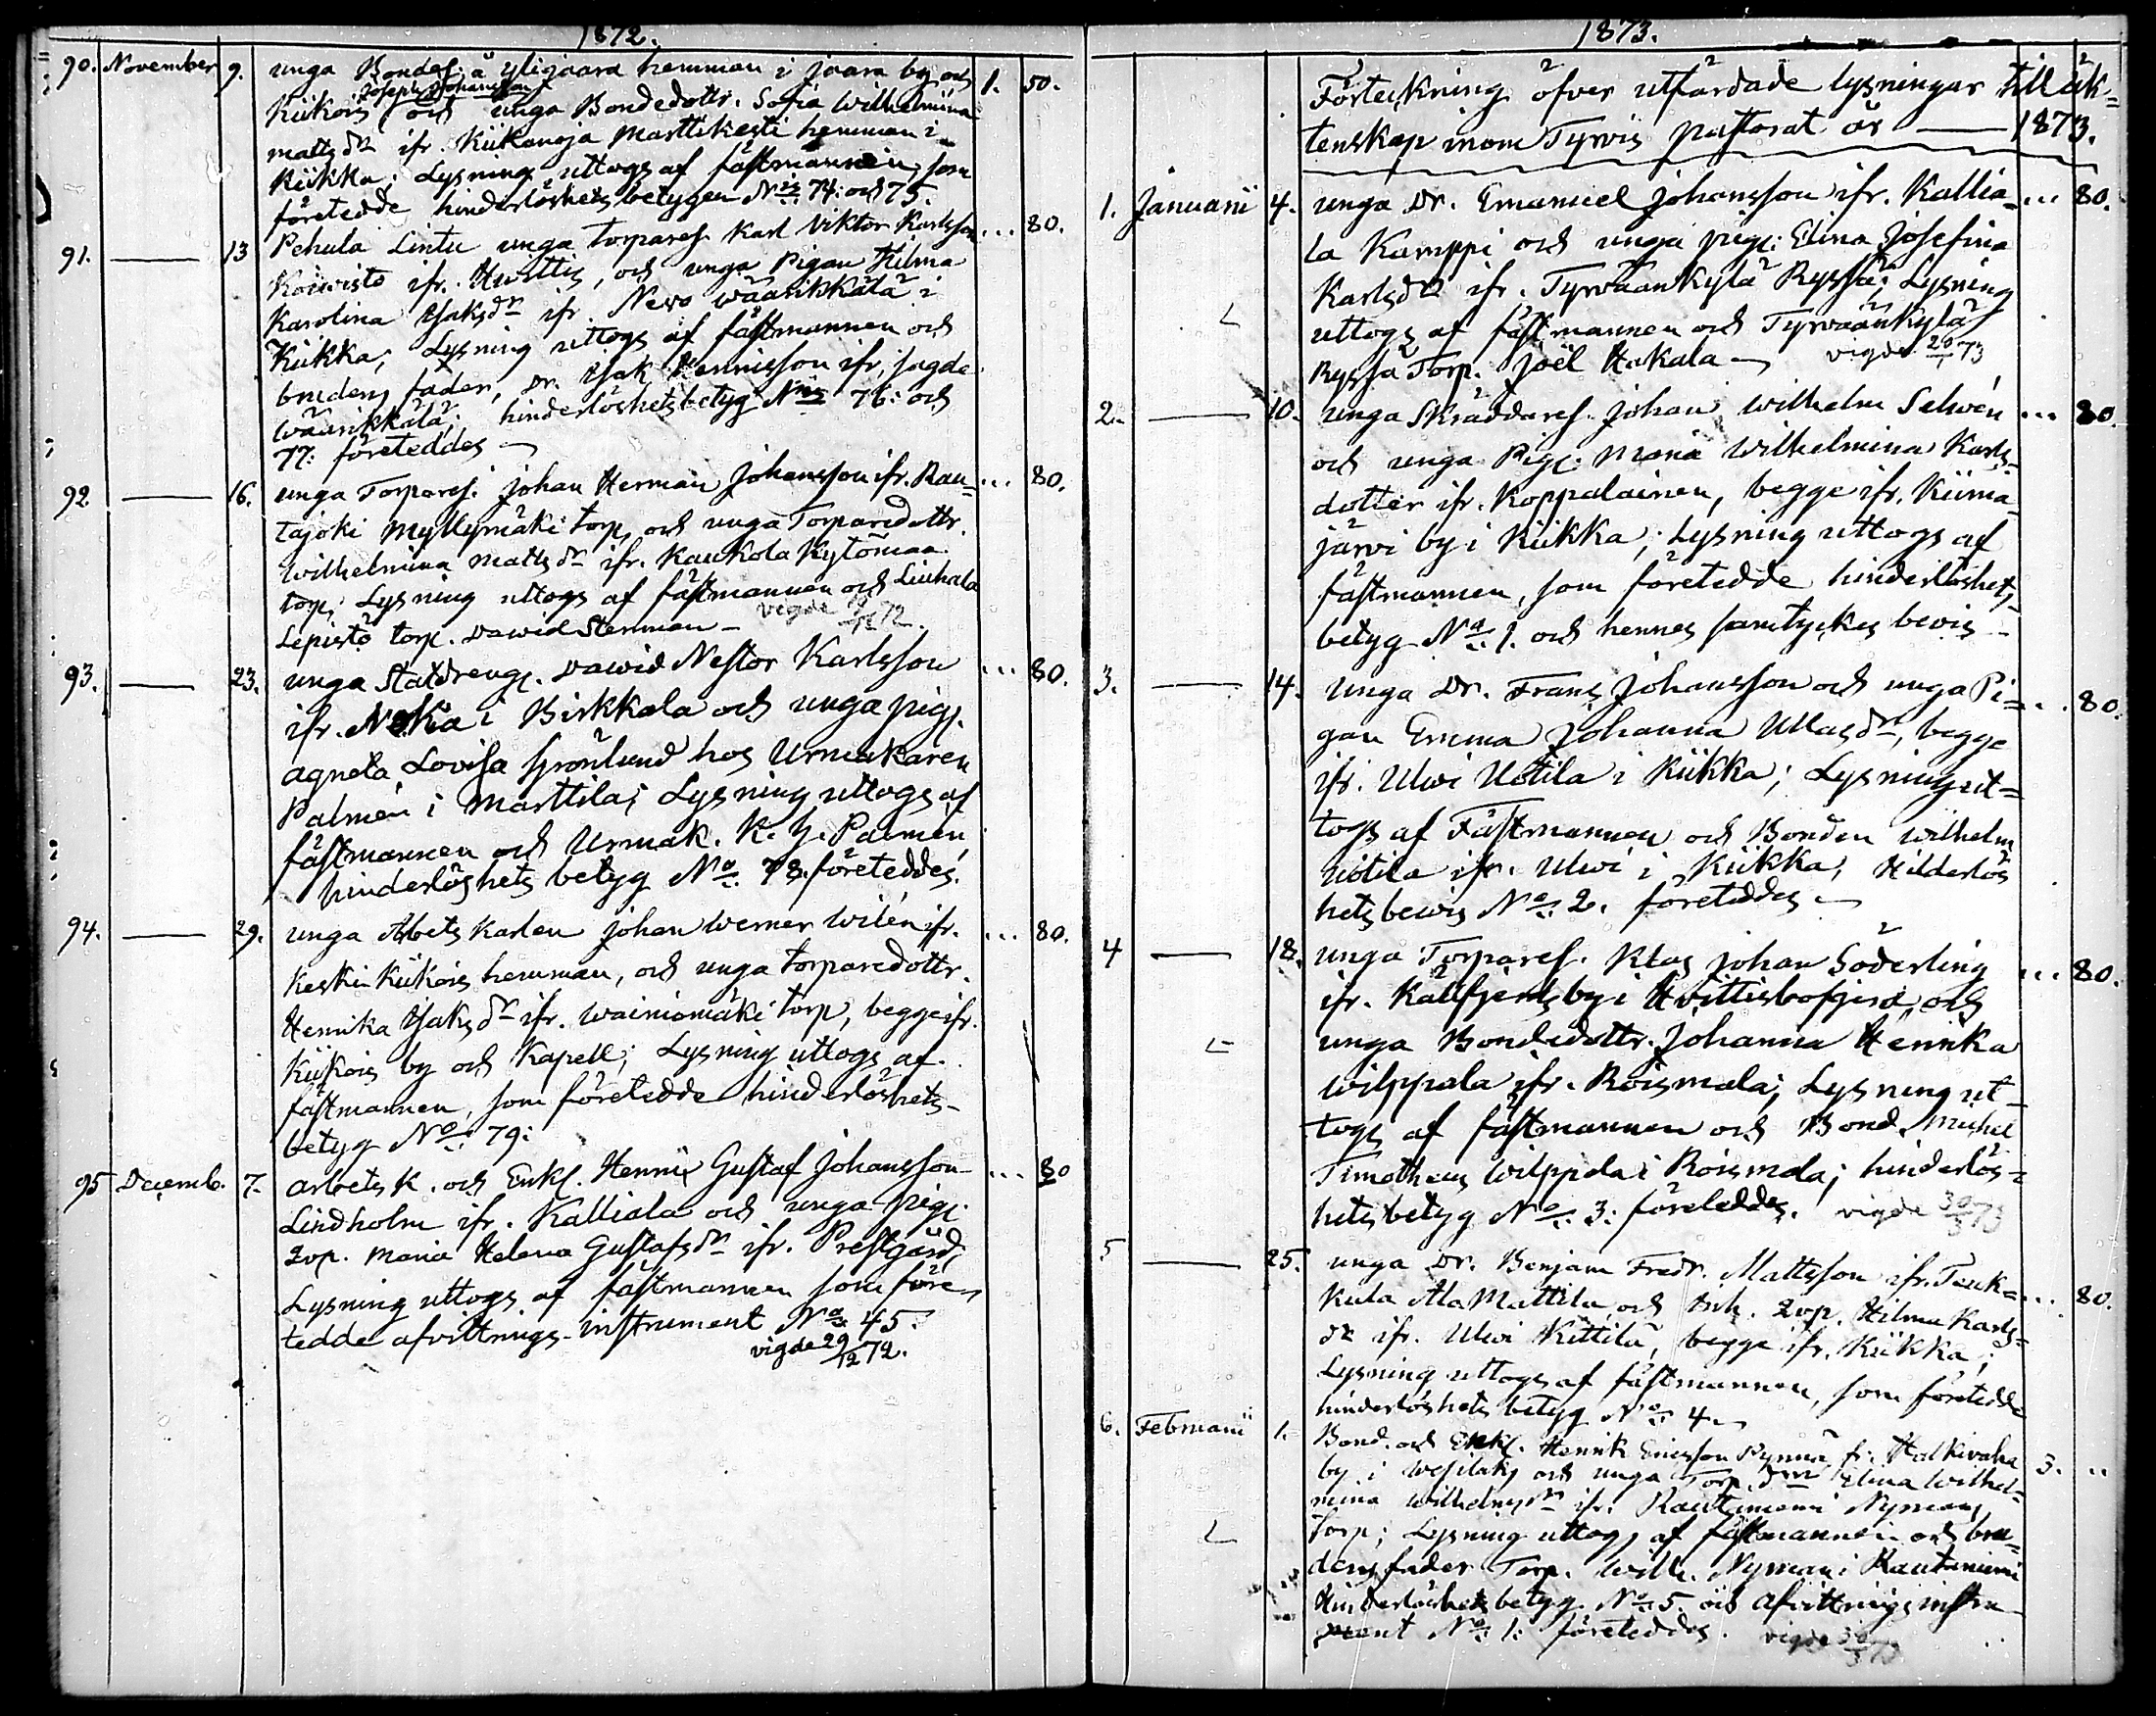 1872.
90. November 9. unga Bondes. å yligaara hemman i jaara by och 1. 50.
Joseph Johansson
Kiikois och unga Bondedottr. Sofia Wilhelmina
mattsdr ifr. Kiikanoja Marttikesti hemman i
Kiikka; Lysning uttogs af fästmannen, som
företedde hinderlöshets betygen No 74: och 75.
91. — 13 Pehula Lintu unga torpares. Karl Viktor Karlsson ... 80.
Koivisto ifr. Hvittis, och unga Pigan Hilma
Karolina Isaksdr ifr. Nevo wäärikkälä i
Kiikka; Lysning uttogs af fästmannen och
brudens fader, Dr. Isak Hennisson ifr. sagde
wäärikkälä; hinderlöshetsbetyg No 76: och
77: företeddes —
92. — 16. unga Torpares. Johan Herman Johansson ifr. Rau- ... 80.
tajoki Myllymäki torp, och unga Torparedottr.
Wilhelmina Mattsdr ifr. Kaukola Kytömaa
torp; Lysning uttogs af fästmannen och Liuhala
Lepistö torp. Dawid Stenman — vigde 12 72.
93. — 23. unga Statdrengs. Dawid Nestor Karlsson ... 80.
ifr. Nokia i Birkkala och unga pigs.
Agneta Lovisa Grönlund hos Urmakaren
Palmén i Marttila; Lysning uttogs af
fästmannen och Urmak. K. G. Palmén,
hinderlöshets betyg No: 78. företeddes.
94. — 29. unga Abets Karlen Johan Werner Wilén ifr. ... 80.
Keski-Kiikois hemman, och unga torparedottr.
Henrika Isaksdr ifr. Wainiomäki torp, begge ifr.
Kiikois by och Kapell; Lysning uttogs af
fästmannen, som företedde hinderlöshets-
betyg No: 79:
95 Decemb. 7. arbets K. och Enkl. Henric Gustaf Johansson ... 80
Lindholm ifr. Kalliala och unga pigs.
Qvp. Maria Helena Gustafsdr ifr. Prestgård,
Lysning uttogs af fästmannen som före-
tedde afvittrings-instrument No: 45.
vigde 29/12 72.
1873.
Förteckning öfver utfärdade lysningar till äk-
tenskap inom Tyrvis pastorat år — 1873.
1. Januarii 4. unga Dr. Emanuel Johansson ifr. Kallia- ... 80.
la Kamppi och unga pigs. Elina Josefina
Karlsdr ifr. Tyrväänkylä Ryssä; Lysning
uttogs af fästmannen och Tyrväänkylä
Ryssä Torp. Joël Hakala — vigde 20/ 73
2. — 10. unga Skräddares. Johan Wilhelm Selwén ... 80.
och unga Pigs. Maria Wilhelmina Karls-
dotter ifr. Koppalainen, begge ifr. Kiima-
järvi by i Kiikka; Lysning uttogs af
fästmannen, som företedde hinderlöshets-
betyg No: 1. och hennes samtyckes bevis —
3. — 14. unga Dr. Frans Johansson och unga Pi- ... 80.
gan Emma Johanna Ullasdr, begge
ifr. Ulwi Uotila i Kiikka; Lysning ut-
togs af Fästmannen och Bonden Wilhelm
Uotila ifr. Ulwi i Kiikka; Hilderlös
hets bewis No: 2. företeddes —
4 — 18. unga Torpares. Klas Johan Söderling ... 80.
ifr. Kallfjerds by i Hvittisbofjerd, och
unga Bondedottr. Johanna Henrika
Wilppala ifr. Roismala; Lysning ut-
togs af fästmannen och Bond. Michel
Timotheus Wilppala i Roismala; hinderlös-
hets betyg No: 3: företeddes. vigde 30/3 73
5 — 25. unga Dr. Benjam Fredr. Mattsson ifr. Teuk- ... 80.
kula Ala Mattila och Inh. Qvp. Hilma Karls-
dr ifr. Ulwi Kittilä, begge ifr. Kiikka;
Lysning uttogs af fästmannen, som företedde
hinderlöshets betyg No: 4 —
6. Februarii 1. Bond. och Enkl. Henrik Ericsson Pynnä fr. Halkivaha 3. ..
by i Wesilaks och unga Torp.dr Elina Wilhel-
mina Wilhelmsdr ifr. Rautaniemi Nyman
Torp; Lysning uttogs af fästmannen och bru-
dens fader Torp. Wilh. Nyman i Rautaniemi
Hinderlöshets betyg No: 5. och Afvittrings instru-
ment No: 1: företeddes. vigde 30/3 73